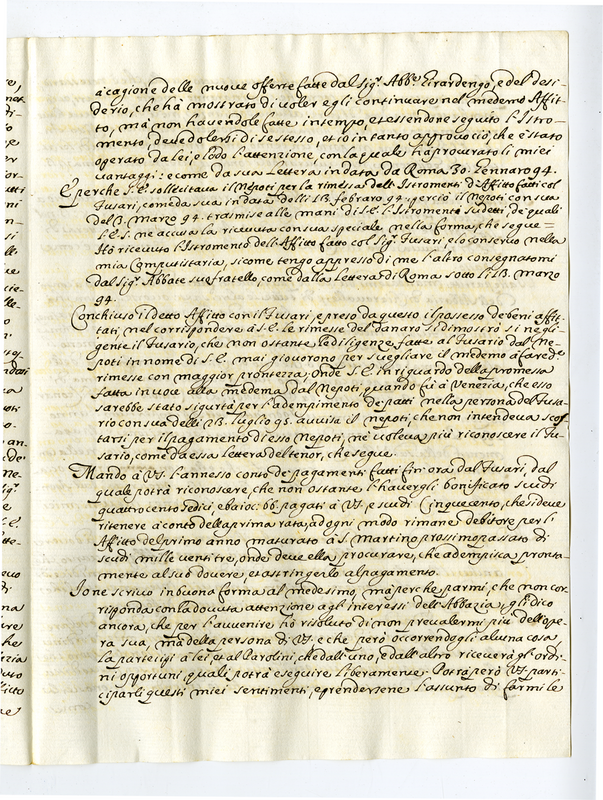 à cagione delle nuove offerte fatte dal Sigr. Abbe. Girardengo, e del desi-
derio, che hà mostrato di voler egli continuare nel medemo Affit-
to, mà non havendole fatte in tempo, et essendone seguito l'Istro-
mento, deve dolersi di se stesso, et io in tanto approvo ciò, che è stato
operato da lei, e lodo l'attenzione, con la quale hà procurato li miei
vantaggi: e come da sua Lettera in data da Roma 30. Gennaro 94.
E perche S. E. sollecitava il Nepoti per la rimessa dell'Istromenti d'Affitto fatti col
Fusari, come da sua in data delli 13. Febraro 94. perciò il Nepoti con sua
del 3. Marzo 94. trasmise alle mani di S. E. l'Istromento sudetti, de quali
S. E. ne accusa la ricevuta con sua speciale nella forma, che segue =
Hò ricevuto l'Istromento dell'Affitto fatto col Sigr. Fusari, e lo conservo nella
mia Computistaria, sicome tengo appresso di me l'altro consegnatomi
dal Sigr. Abbate suo fratello, come dalla Lettera di Roma sotto li 13. Marzo
94.
Conchiuso il detto Affitto con il Fusari, e preso da questo il possesso de beni affit-
tati, nel corrispondere à S. E. le rimesse del danaro si dimostrò sì negli-
gente il Fusario, che non ostante le diligenze fatte al Fusario dal Ne-
poti in nome di S. E. mai giovorono per svegliare il medemo à far de
rimesse con maggior prontezza; onde S. E. in riguardo della promessa
fatta in voce alla medema dal Nepoti, quando fù à Venezia, che esso
sarebbe stato sigurtà per l'adempimento de patti nella persona del Fusa-
rio con sua delli 23. Luglio 95. avvisa il Nepoti, che non intendeva scos-
tarsi per il pagamento di esso Nepoti, ne voleva più riconoscere il Fu-
sario, come da essa Lettera del tenor, che segue.
Mando à VS. l'annesso conto de pagamenti fatti fin'ora dal Fusari, dal
quale potrà riconoscere, che non ostante l'havergli bonificato scudi
quattrocento sedici, e baioc: 66. pagati à VS. e scudi Cinquecento, che si deve
ritenere à conto della prima rata, ad ogni modo rimane debitore per li
Affitto del primo anno maturato à S. Martino prossimo passato di
scudi mille venti tre, onde deve ella procurare, che adempisca pronta-
mente al suo dovere, et astringerlo al pagamento.
Io ne scrivo in buona forma al medesimo, mà perche parmi, che non cor-
risponda con la dovuta attenzione agl'interessi dell'Abbazia, gli dico
ancora, che per l'avvenire hò risoluto di non prevalermi più dell'ope-
ra sua, mà della persona di VS. e che però occorrendogli alcuna cosa
la partecipi à lei, et al Parolini, che dall'uno, e dall'altro riceverà gl'ordi-
ni opportuni quali potrà eseguire liberamente. Potrà però VS. parti-
ciparli questi miei sentimenti, e prendersene l'assunto di farmi le